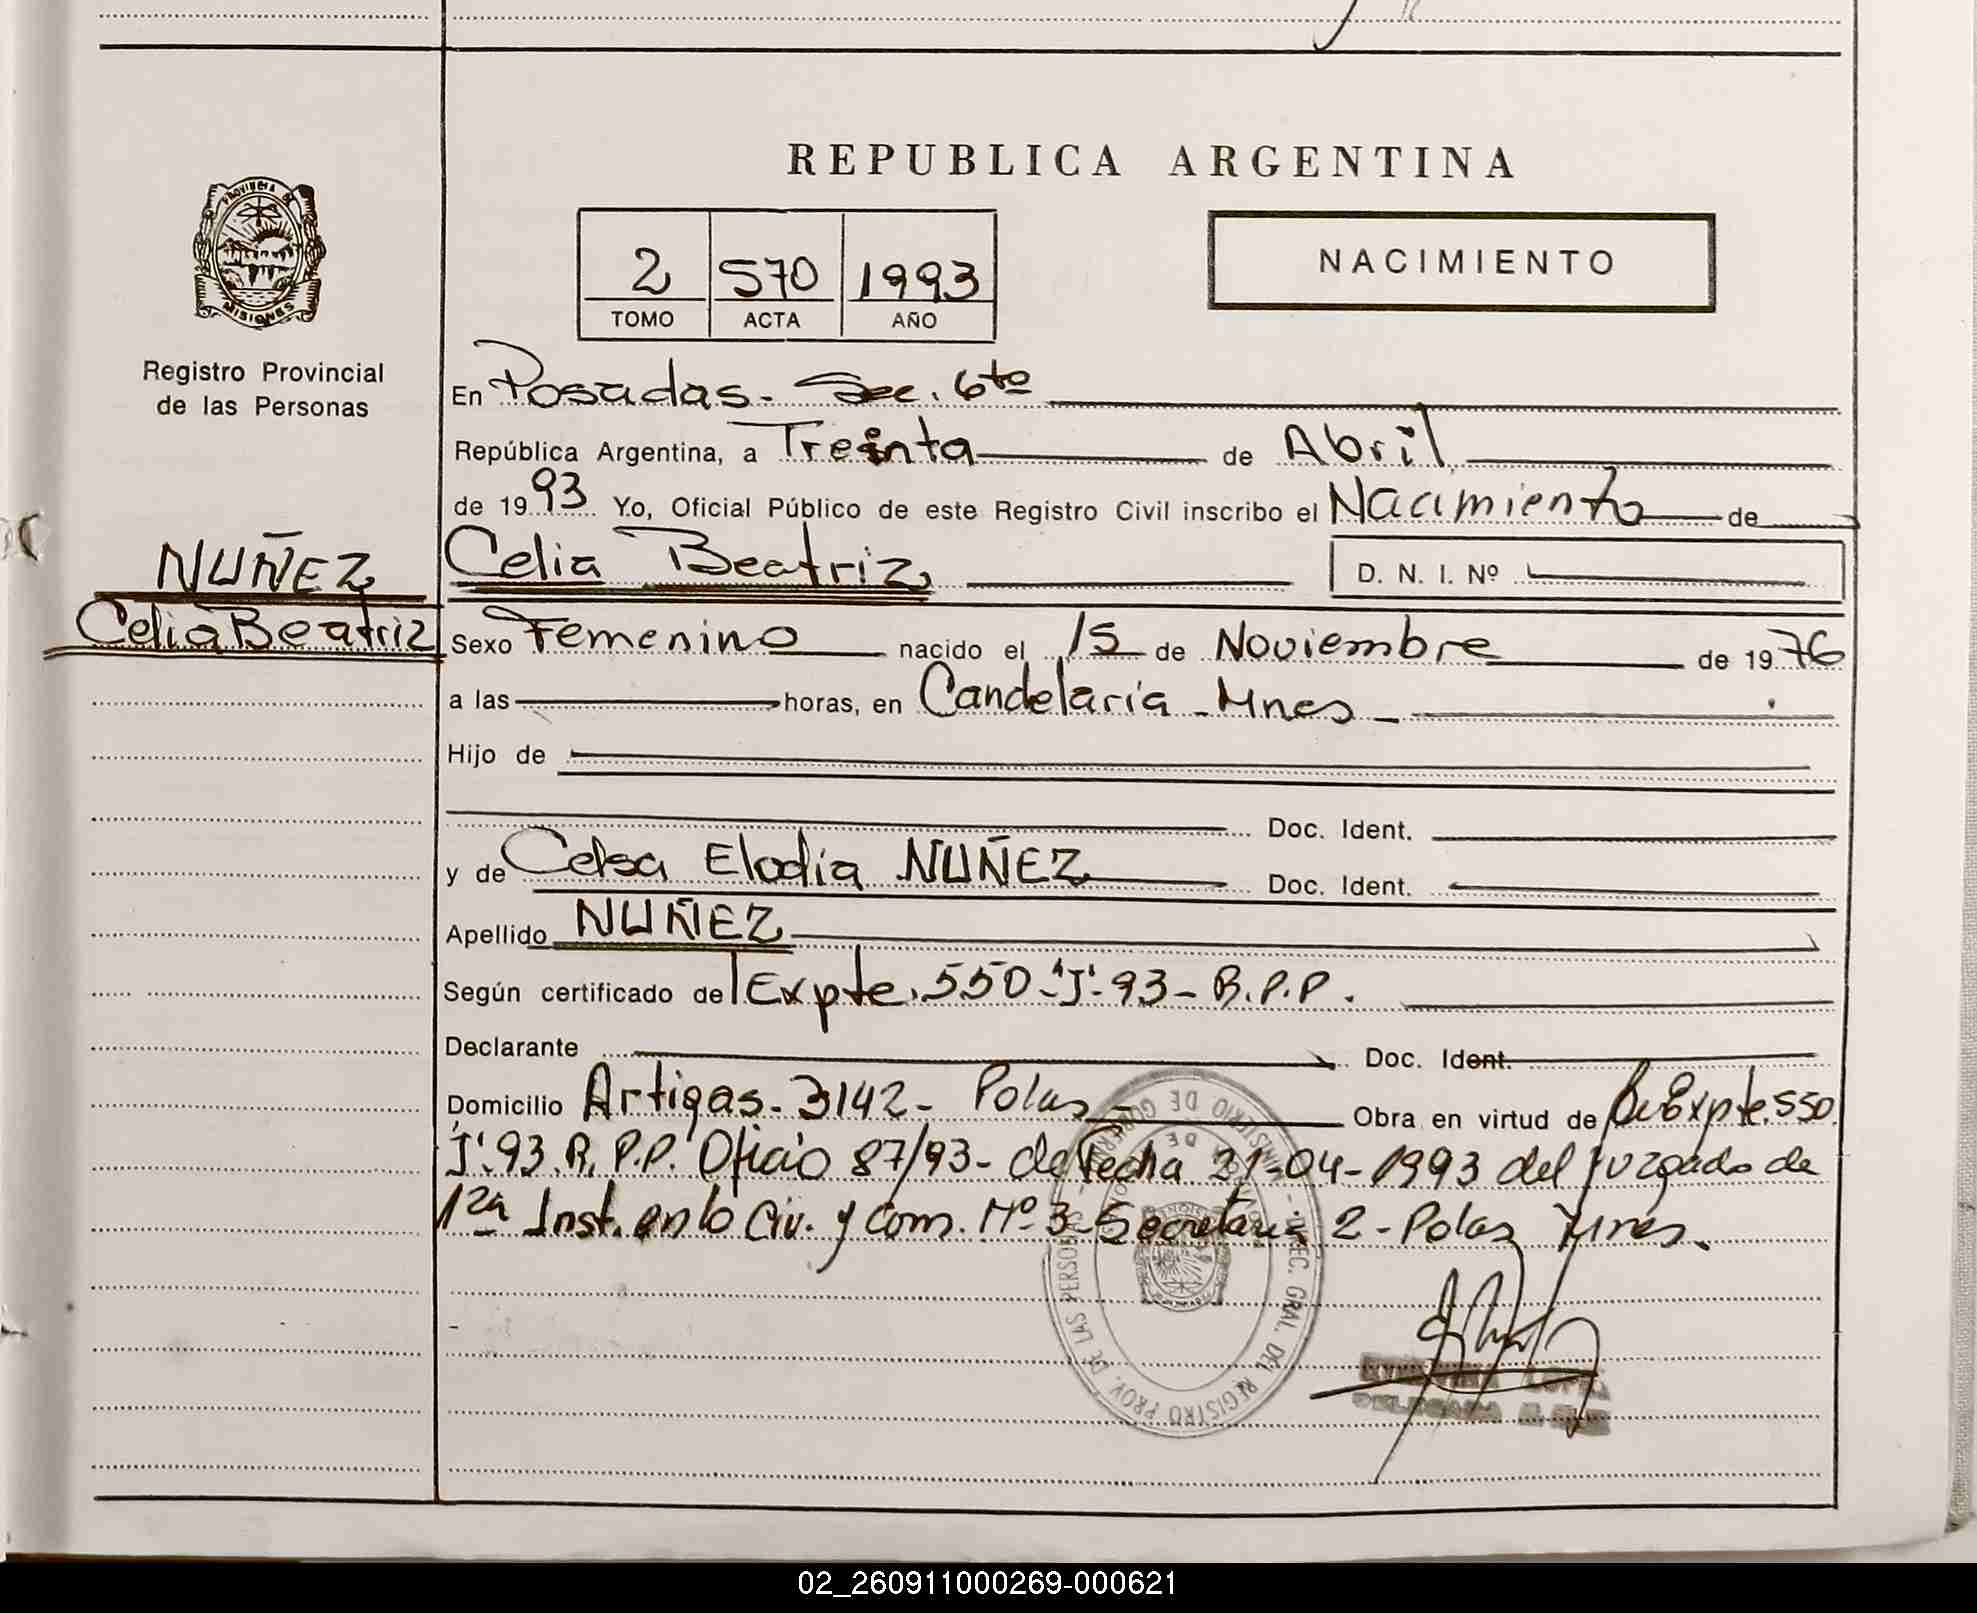 REPUBLICA ARGENTINA
PROVINCIA DE
MISIONES
2 570 1993
TOMO ACTA AÑO
NACIMIENTO
Registro Provincial
de las Personas
En Posadas - Sec. 6ta
República Argentina, a Treinta de Abril
de 1993 Yo, Oficial Público de este Registro Civil inscribo el Nacimiento de
NUÑEZ
Celia Beatriz
Celia Beatriz D. N. I. Nº
Sexo Femenino nacido el 15 de Noviembre de 1976
a las horas, en Candelaria - Mnes -
Hijo de
Doc. Ident.
y de Celsa Elodia NUÑEZ Doc. Ident.
Apellido NUÑEZ
Según certificado de Expte. 550-"J"-93- R.P.P.
Declarante Doc. Ident.
Domicilio Artigas - 3142 - Pdas - Obra en virtud de Expte. 550
"J".93.R.P.P. Oficio 87/93 - de Fecha 21-04-1993 del Juzgado de
1ra Inst. en lo Civ. y Com. Nº 3 - Secretaria 2 - Pdas Mnes.
GRAL. DEL REGISTRO PROV. DE LAS PERSONAS
MINISTERIO DE GOBIERNO
LOPEZ
02_260911000269-000621